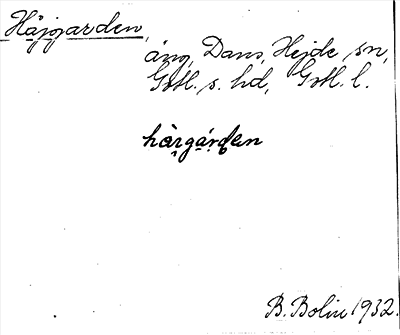 Häjgarden,
äng, Dans, Hejde sn,
Gotl. s. hd, Gotl. l.
hàrgárden
B. Bolin 1932.